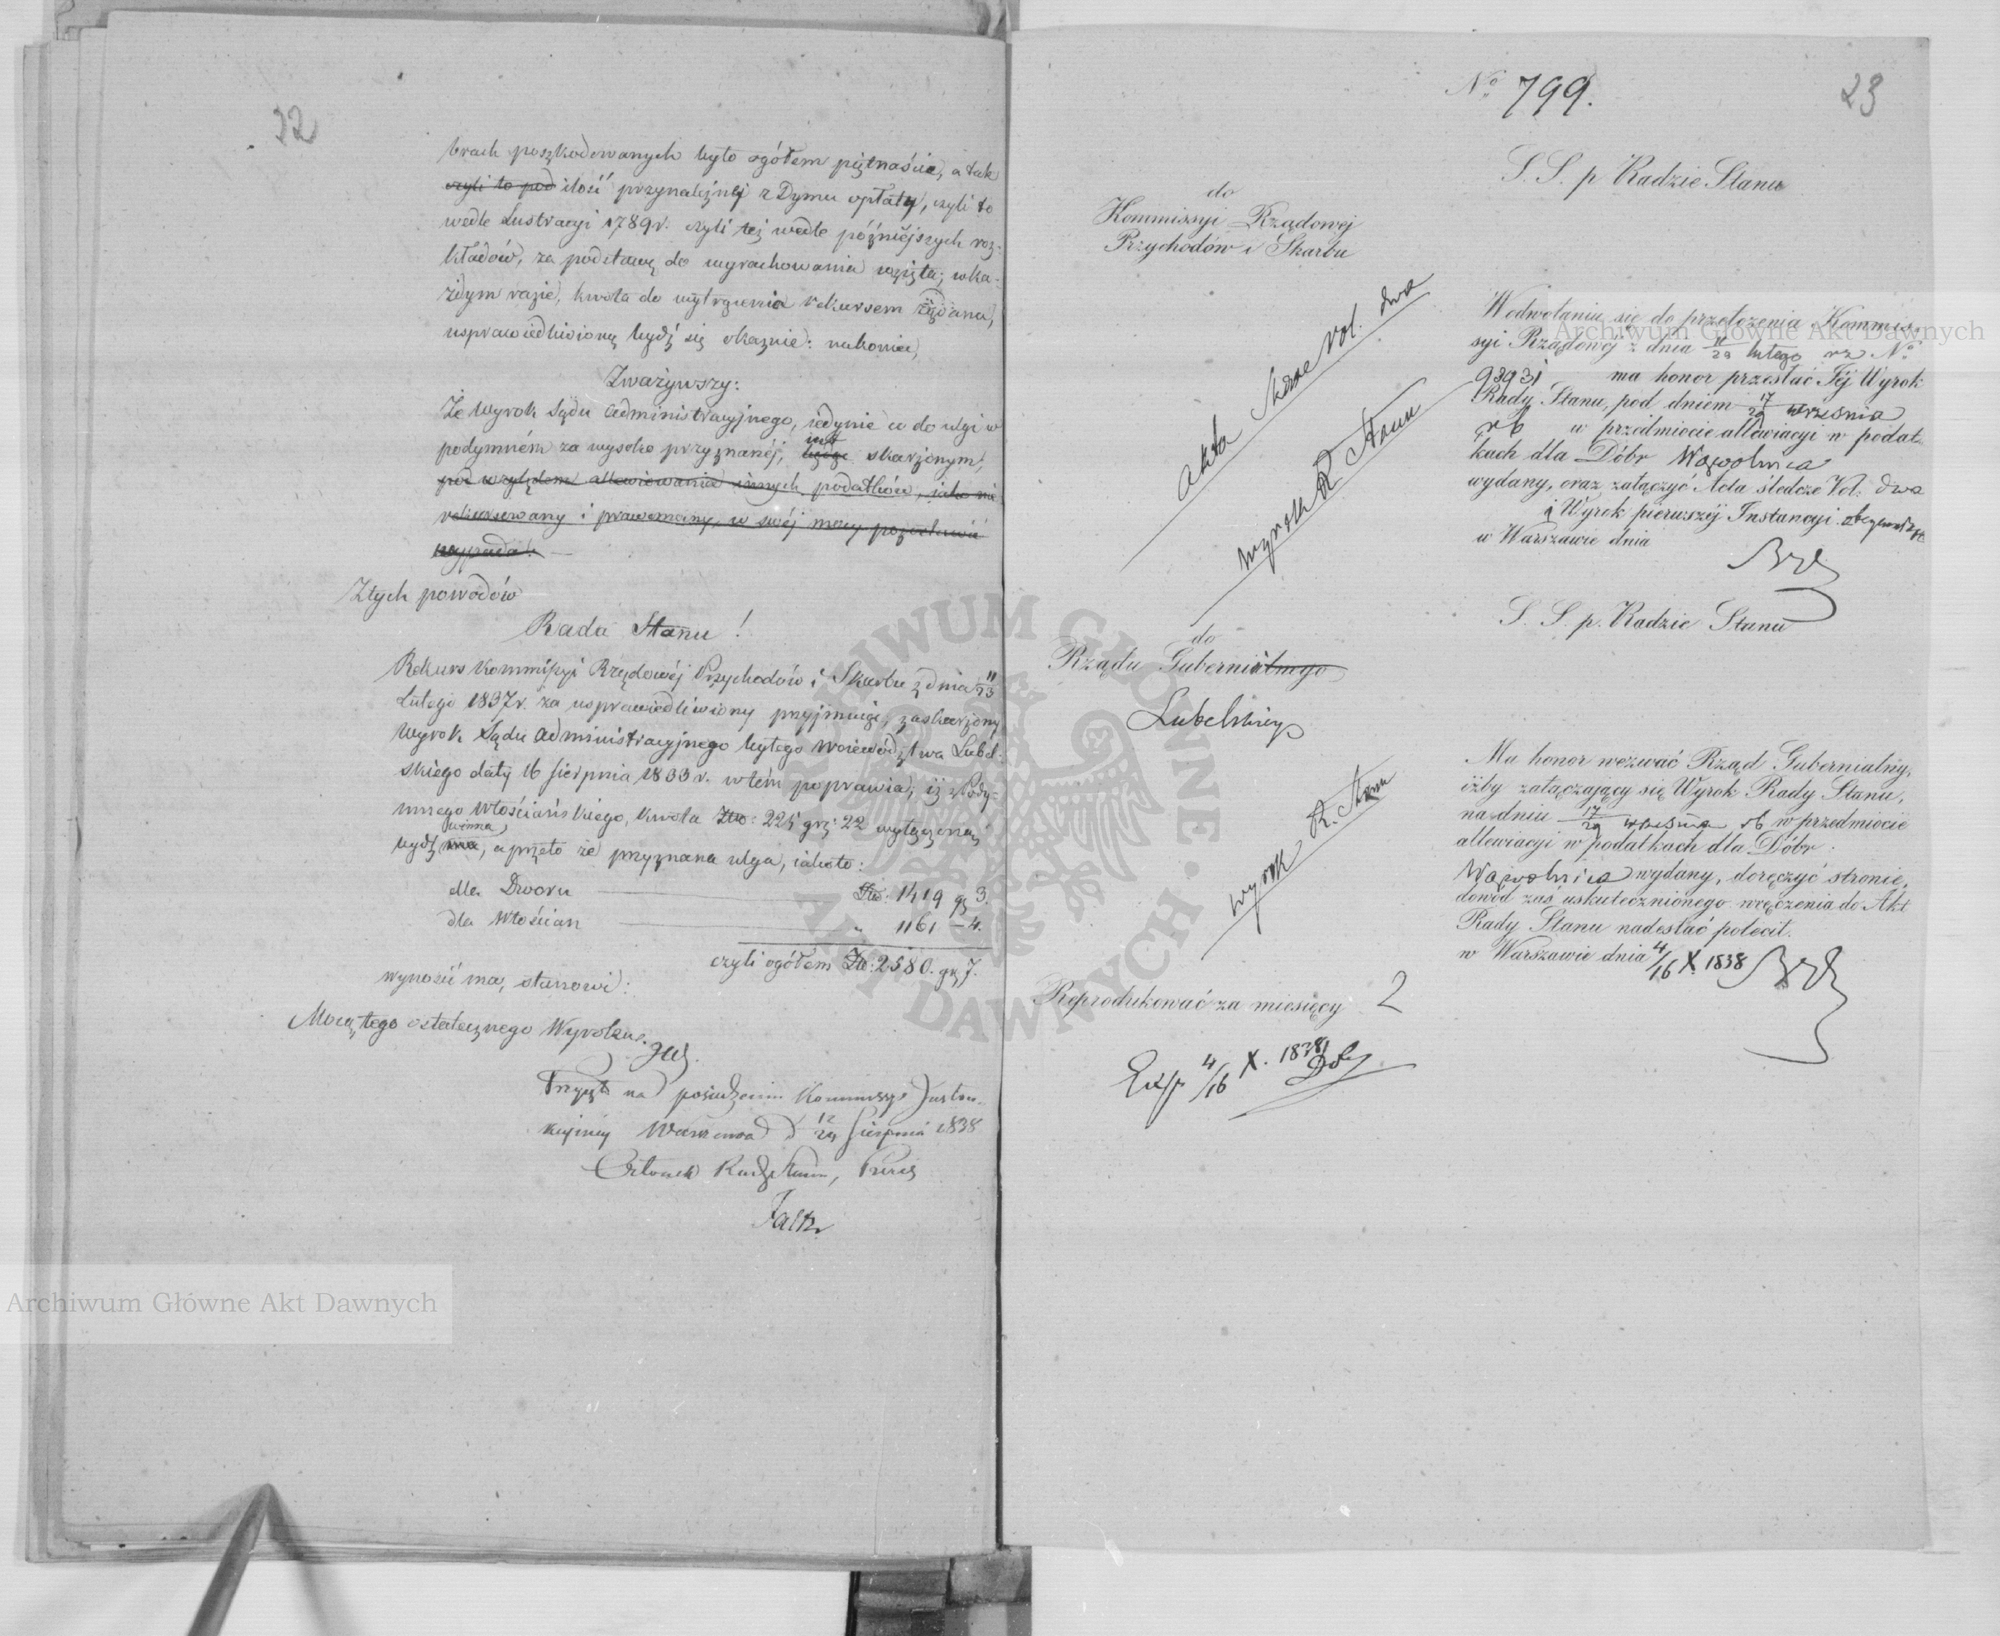 22
brach poszkodowanych było ogółem piętnaście, a tak
czyli to pod ilość przynależnej z Dymu opłaty, czyli to
wedle Lustracyi 1789 r. czyli tej wedle późniejszych roz-
kładów, za podstawę do wyrachowania wzięta; w ka-
żdym razie, kwota do wytrącenia rekursem żądana,
usprawiedliwioną bydź się okaznie: nakoniec,
Zważywszy:
Że Wyrok Sądu Administracyjnego, jedynie co do ulgi w
podymném za wysoko przyznanéj, jest skarżonym,
pod względem allewiowania innych podatków, jako nie
rekursowany i prawomocny, w swéj mocy pozostawić
wypada:
Z tych powodów
Rada Stanu!
Rekurs Kommissyi Rządowéj Przychodów i Skarbu z dnia 11/23
Lutego 1837 r. za usprawiedliwiony przyjmując, zaskarżony
Wyrok Sądu Administracyjnego byłego Województwa Lubel-
skiego daty 16 Sierpnia 1833 r. w tém poprawia, iż z Pody-
mnego Włościańskiego, kwota Złp: 225 gr: 22 wyłączoną
winna
bydź ma, a przeto że przyznana ulga, jakoto:
dla Dworu Złp: 1419 gr 3.
dla Włościan " 1161 – 4.
czyli ogółem Złp: 2580. gr 7.
wynosić ma, stanowi:
Mocą tego ostatecznego Wyroku.
Przyjęto na posiedzeniu Kommissyi Instruk-
cyjnéj Warszawa d 12/24 Sierpnia 1838
Członek Rady Stanu, Prezes
Falz
No 799.
23
S. S. p Radzie Stanu
do
Kommissyi Rządowej
Przychodów i Skarbu
Akta Śledcze Vol. dwa
Wyrok R. Stanu
W odwołaniu się do przełożenia Kommis-
syi Rządowej z dnia 11/23 lutego No
93931 ma honor przesłać Jéj Wyrok
Rady Stanu, pod dniem 17/29 września
rb w przedmiocie allewiacyi w podat-
kach dla Dóbr Wąwolnica
wydany, oraz załączyć Acta śledcze Vol. dwa
i Wyrok pierwszéj Instancyi
w Warszawie dnia
S. S. p. Radzie Stanu
do
Rządu Gubernialnego
Lubelskiego
Wyrok R. Stanu
Ma honor wezwać Rząd Gubernialny,
iżby załączający się Wyrok Rady Stanu,
na dniu 17/29 września rb w przedmiocie
allewiacyi w podatkach dla Dóbr
Wąwolnica wydany, doręczyć stronie,
dowód zaś uskutecznionego wręczenia do Akt
Rady Stanu nadesłać polecił.
w Warszawie dnia 4/16 X 1838
Reprodukować za miesięcy 2
Exp. 4/16 X. 1838
Archiwum Główne Akt Dawnych
Archiwum Główne Akt Dawnych
ARCHIWUM GŁÓWNE AKT DAWNYCH